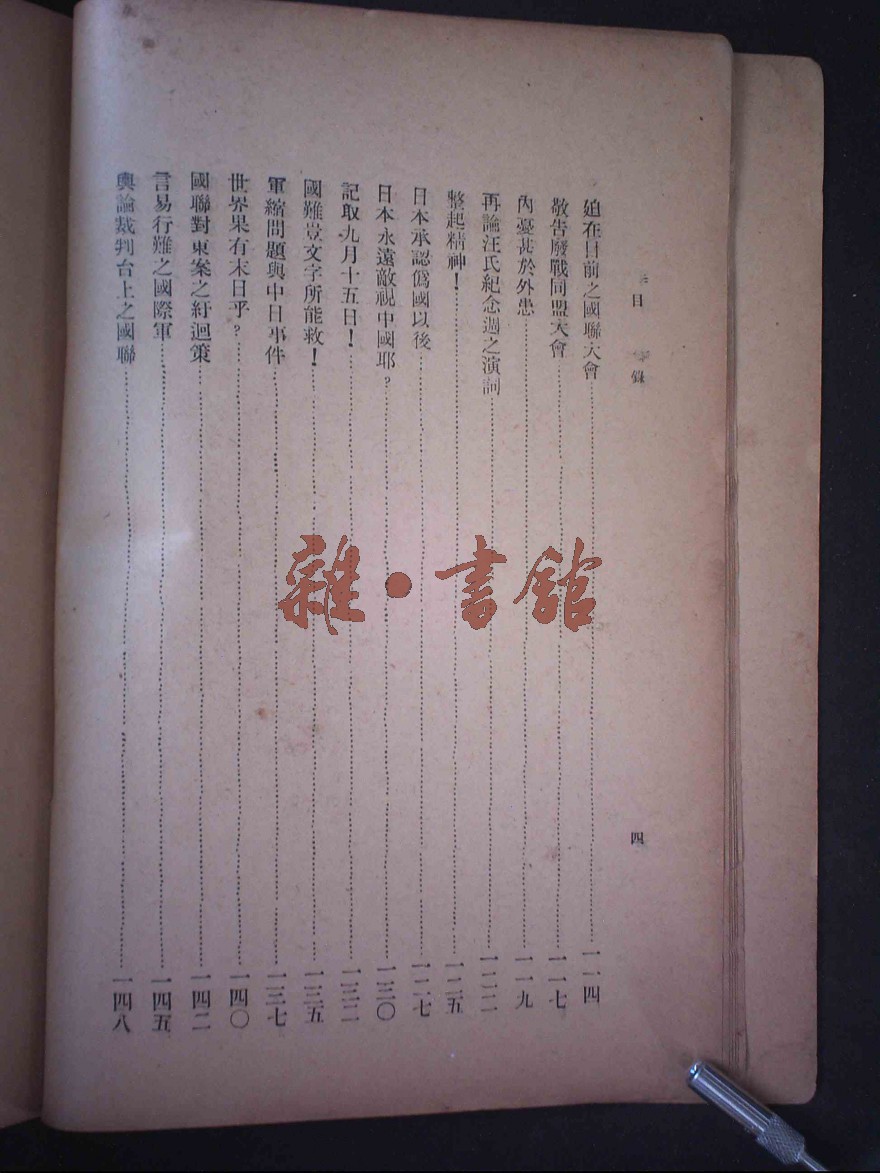 目錄
四
迫在目前之國聯大會 一一四
敬告廢戰同盟大會 一一七
內憂甚於外患 一一九
再論汪氏紀念週之演詞 一二二
整起精神！ 一二五
日本承認僞國以後 一二七
日本永遠敵視中國耶？ 一三〇
記取九月十五日！ 一三二
國難豈文字所能救！ 一三五
軍縮問題與中日事件 一三七
世界果有末日乎？ 一四〇
國聯對東案之紆迴策 一四二
言易行難之國際軍 一四五
輿論裁判台上之國聯 一四八
雜·書館